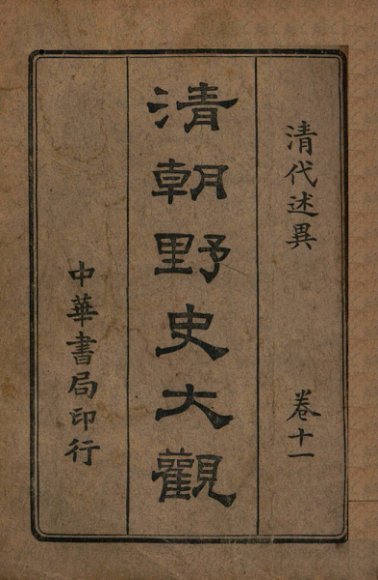 清代述異
卷十一
清朝野史大觀
中華書局印行